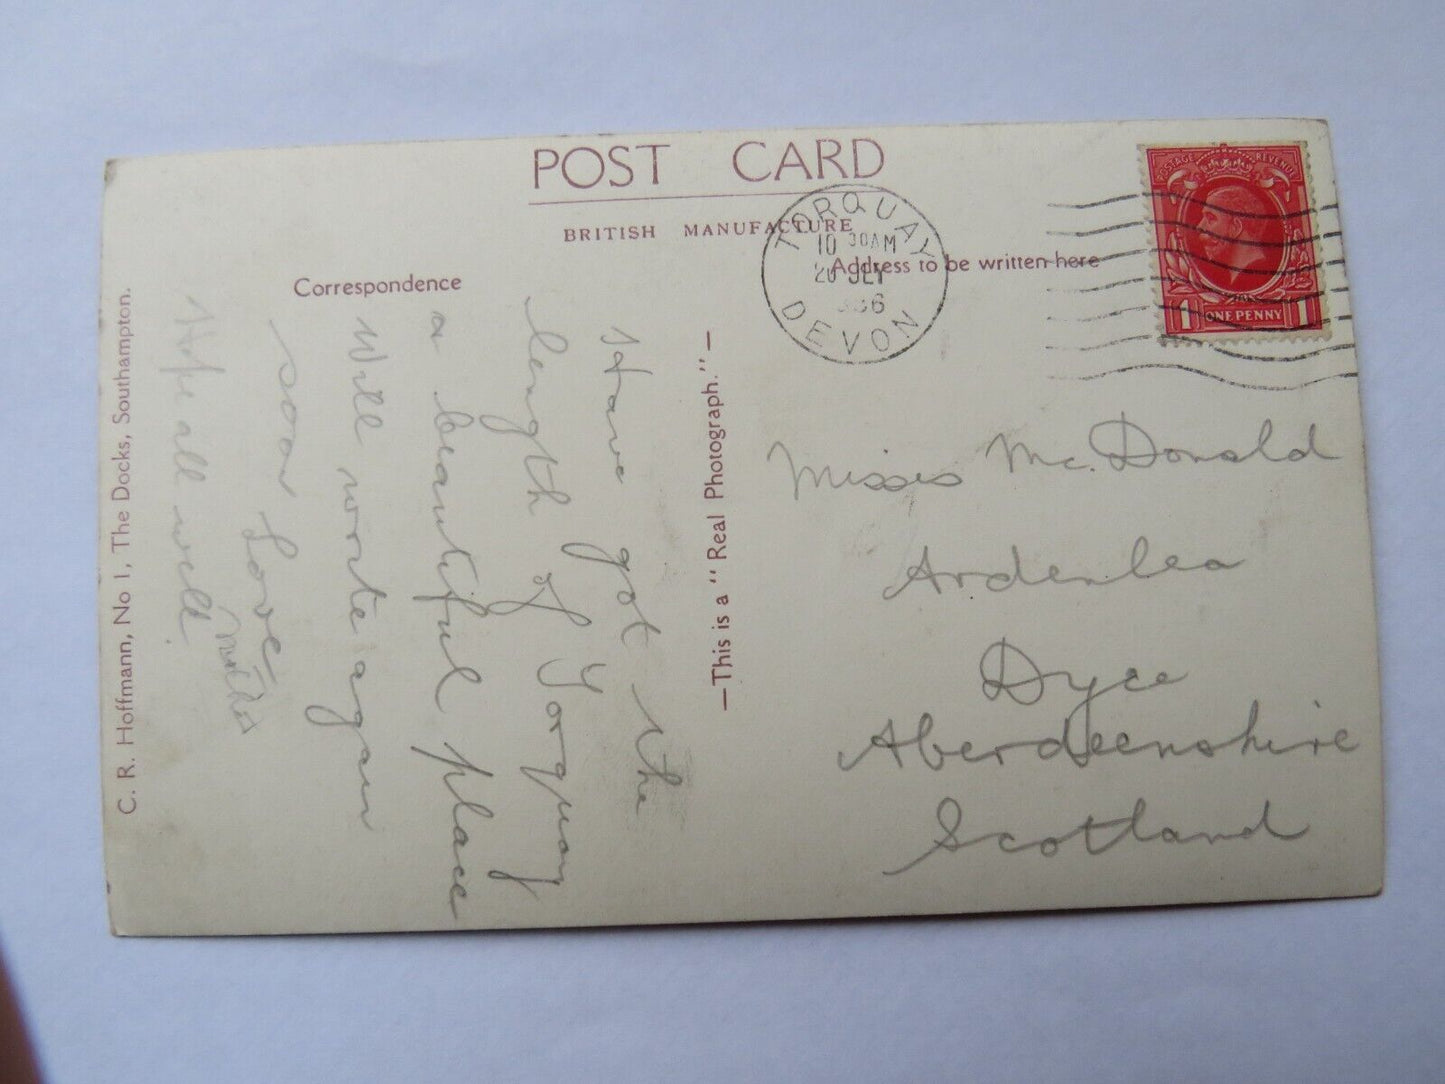 POST CARD
BRITISH MANUFACTURE
Correspondence
Address to be written here
TORQUAY
10 30AM
20
DEVON
POSTAGE REVENUE
1 ONE PENNY 1
Have got the
length of Torquay
a beautiful place
Will write again
soon Love
Hope all well.
—This is a "Real Photograph."—
C. R. Hoffmann, No 1, The Docks, Southampton.
Misses Mc. Donald
Ardenlea
Dyce
Aberdeenshire
Scotland